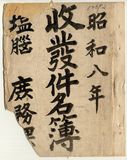 昭和八年
收發件名簿
塩腦
庶務